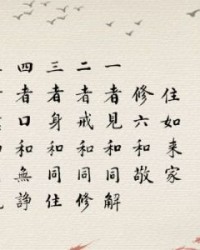 住如來家
修六和敬
一者見和同解
二者戒和同修
三者身和同住
四者口和無諍